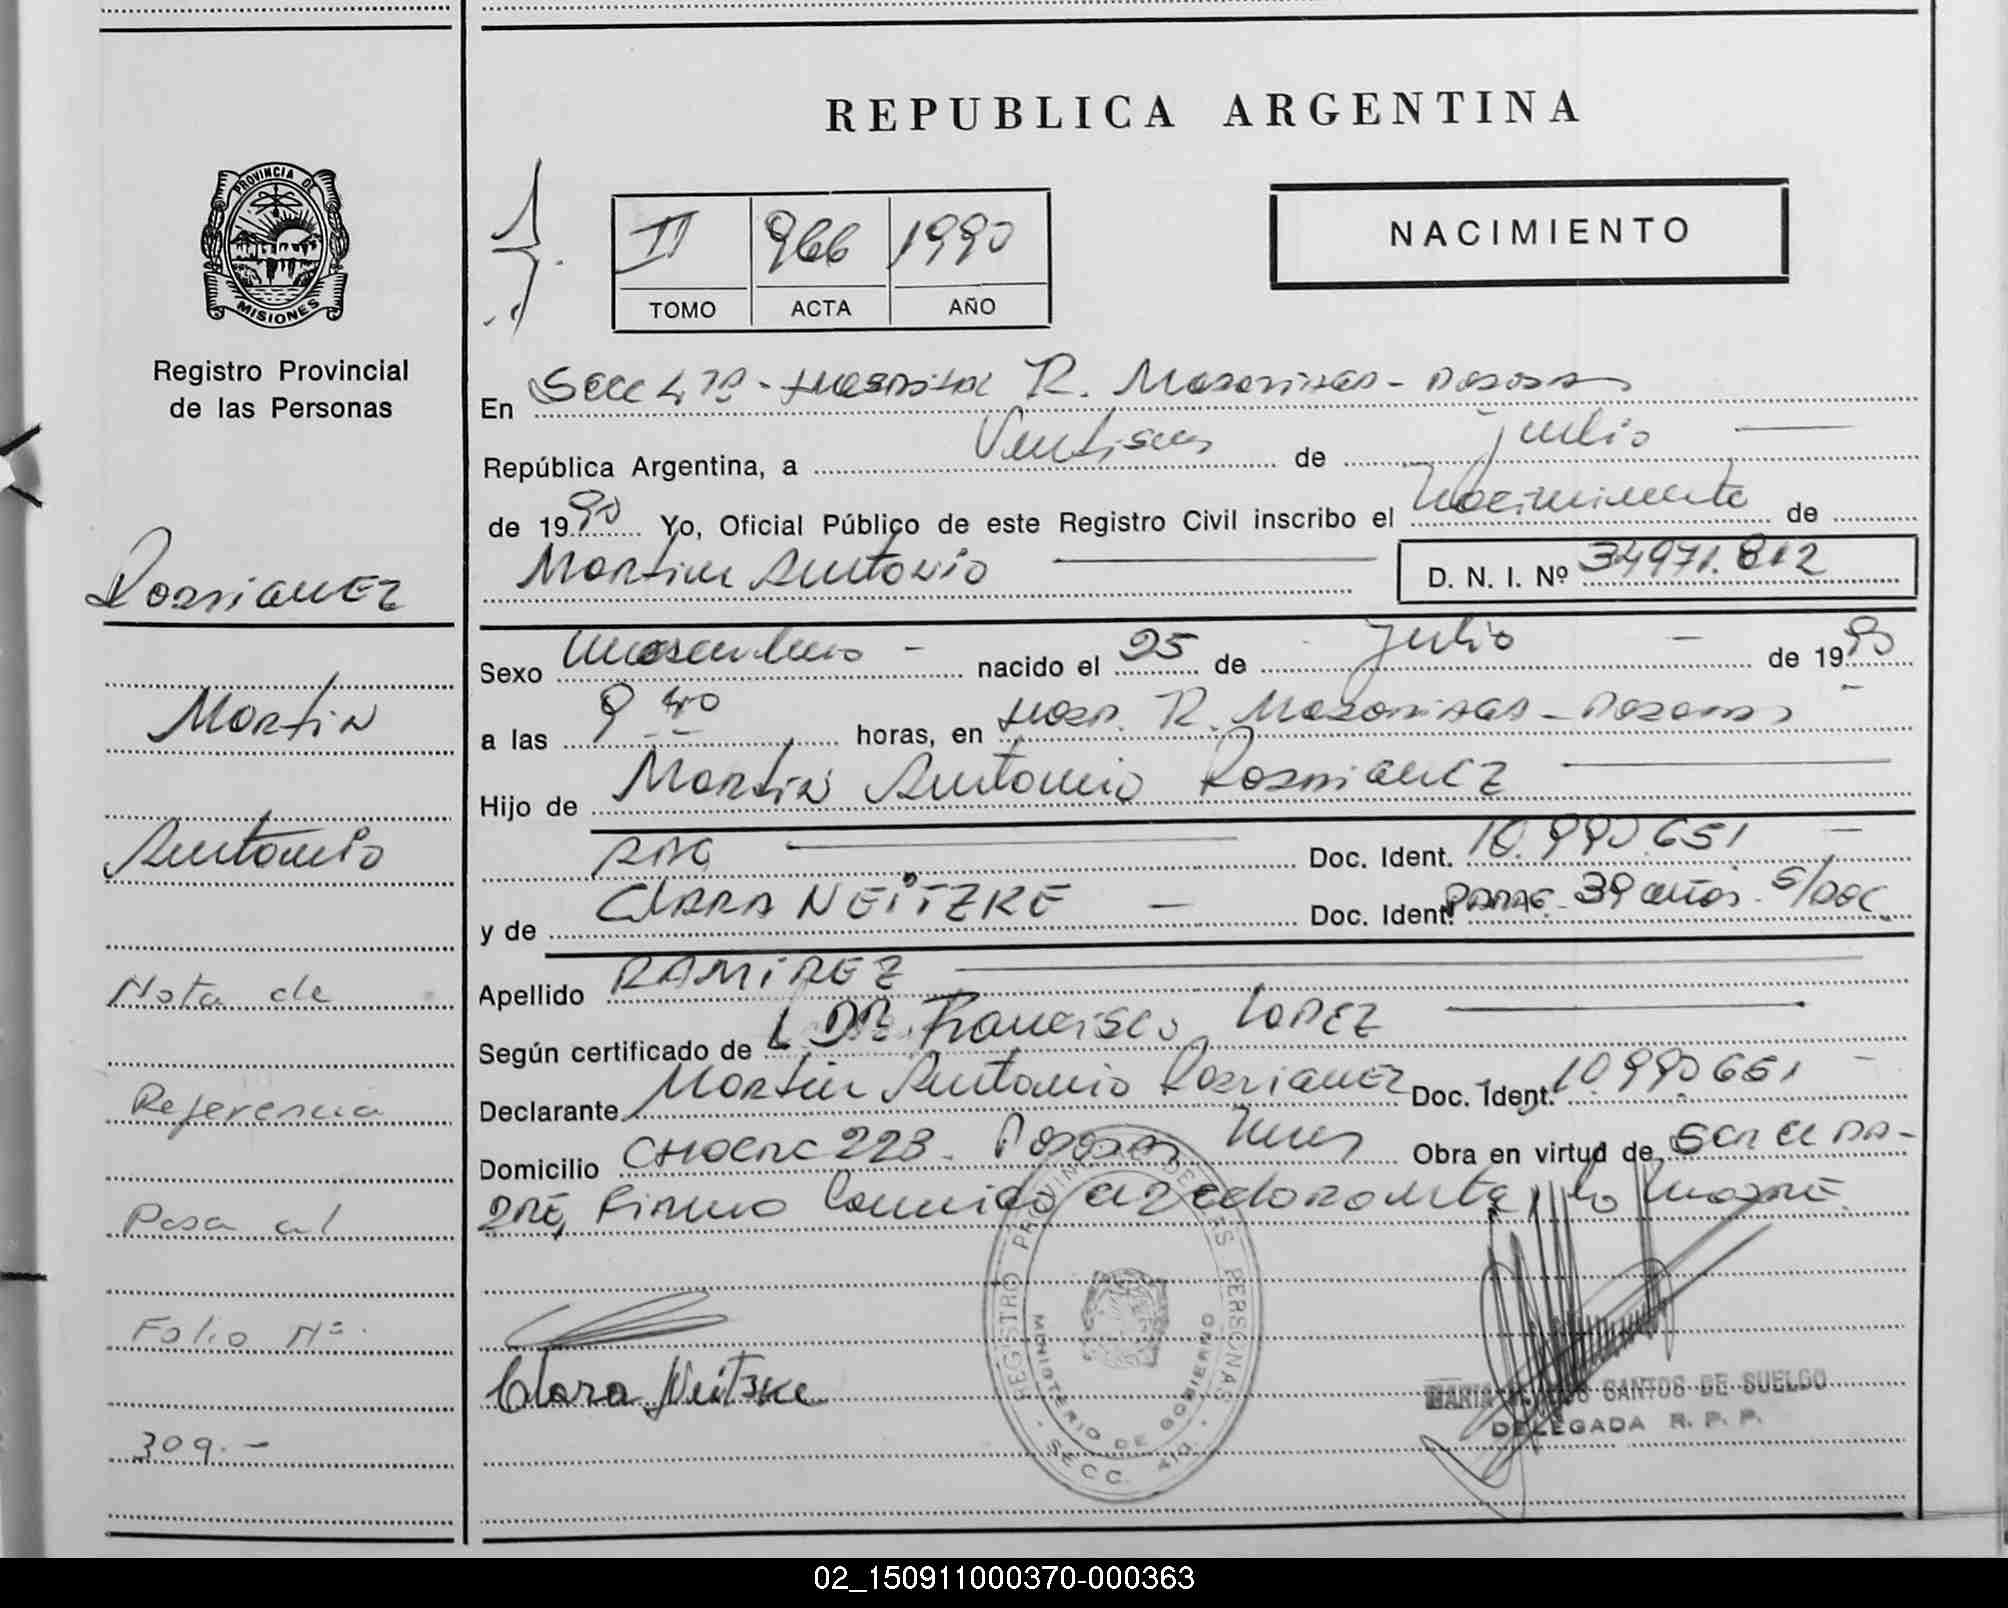 REPUBLICA ARGENTINA
PROVINCIA DE
MISIONES
Registro Provincial
de las Personas
II 966 1990
TOMO ACTA AÑO
NACIMIENTO
En Secc 4ta - Hospital R. Madariaga - Posadas
República Argentina, a Ventiseis de Julio
de 1990 Yo, Oficial Público de este Registro Civil inscribo el Nacimiento de
Martin Antonio D. N. I. Nº 34971.812
Sexo masculino - nacido el 25 de Julio - de 1990
a las 9 40 horas, en Hosp. R. Madariaga - Posadas
Hijo de Martin Antonio
Doc. Ident. 10.990.651 -
y de CLARA NEITZKE - Doc. Ident. 39 años. S/DOC.
Apellido RAMIREZ
Según certificado de DR. Francisco LOPEZ
Declarante Martin Antonio Doc. Ident. 10990651 -
Domicilio 223. Posadas Mnes Obra en virtud de ser el PA-
DRE, Firma Conmigo el declarante, la MADRE.
Clara Neitzke
REGISTRO PROVINCIAL DE LAS PERSONAS
MINISTERIO DE GOBIERNO
SECC. 4ta.
MARIA SANTOS DE SUELDO
DELEGADA R. P. P.
Martin
Antonio
Nota de
Referencia
Pasa al
Folio Nº
309.-
02_150911000370-000363